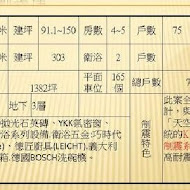 米 建坪 91.1~150 房數 4~5 戶數 75
米 建坪 303 衛浴 2
1382坪 平面車位 165個 總戶數
地下 3層
拋光石英磚、YKK氣密窗、
浴系列設備.衛浴五金:巧時代
e)、德匠廚具(LEICHT).義大利
箱.德國BOSCH洗碗機。
制震特色
此案全
與「
「天空
統的K
制震系
高耐震